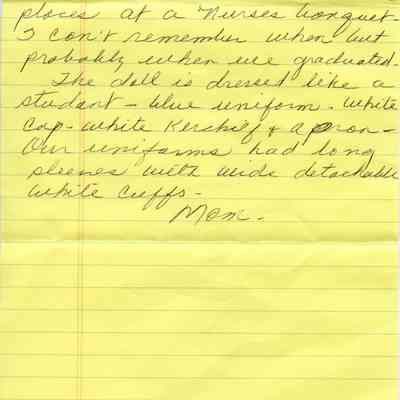 places at a Nurses banquet-
I can't remember when but
probably when we graduated.
The doll is dressed like a
student - blue uniform - white
cap - white Kerchief & apron -
Our uniforms had long
sleeves with wide detachable
white cuffs -
Mom.